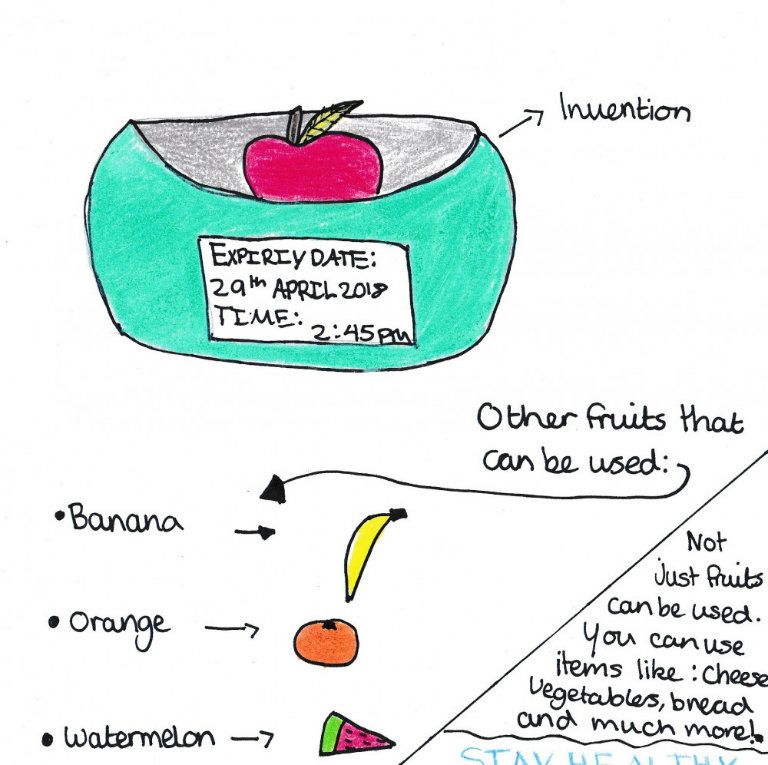 Invention
EXPIRIY DATE:
29th APRIL 2018
TIME:
2:45pm
Other fruits that
can be used:
• Banana
• Orange
• Watermelon
Not
just fruits
can be used.
You can use
items like : Cheese
vegetables, bread
and much more!
STAY HEALTHY